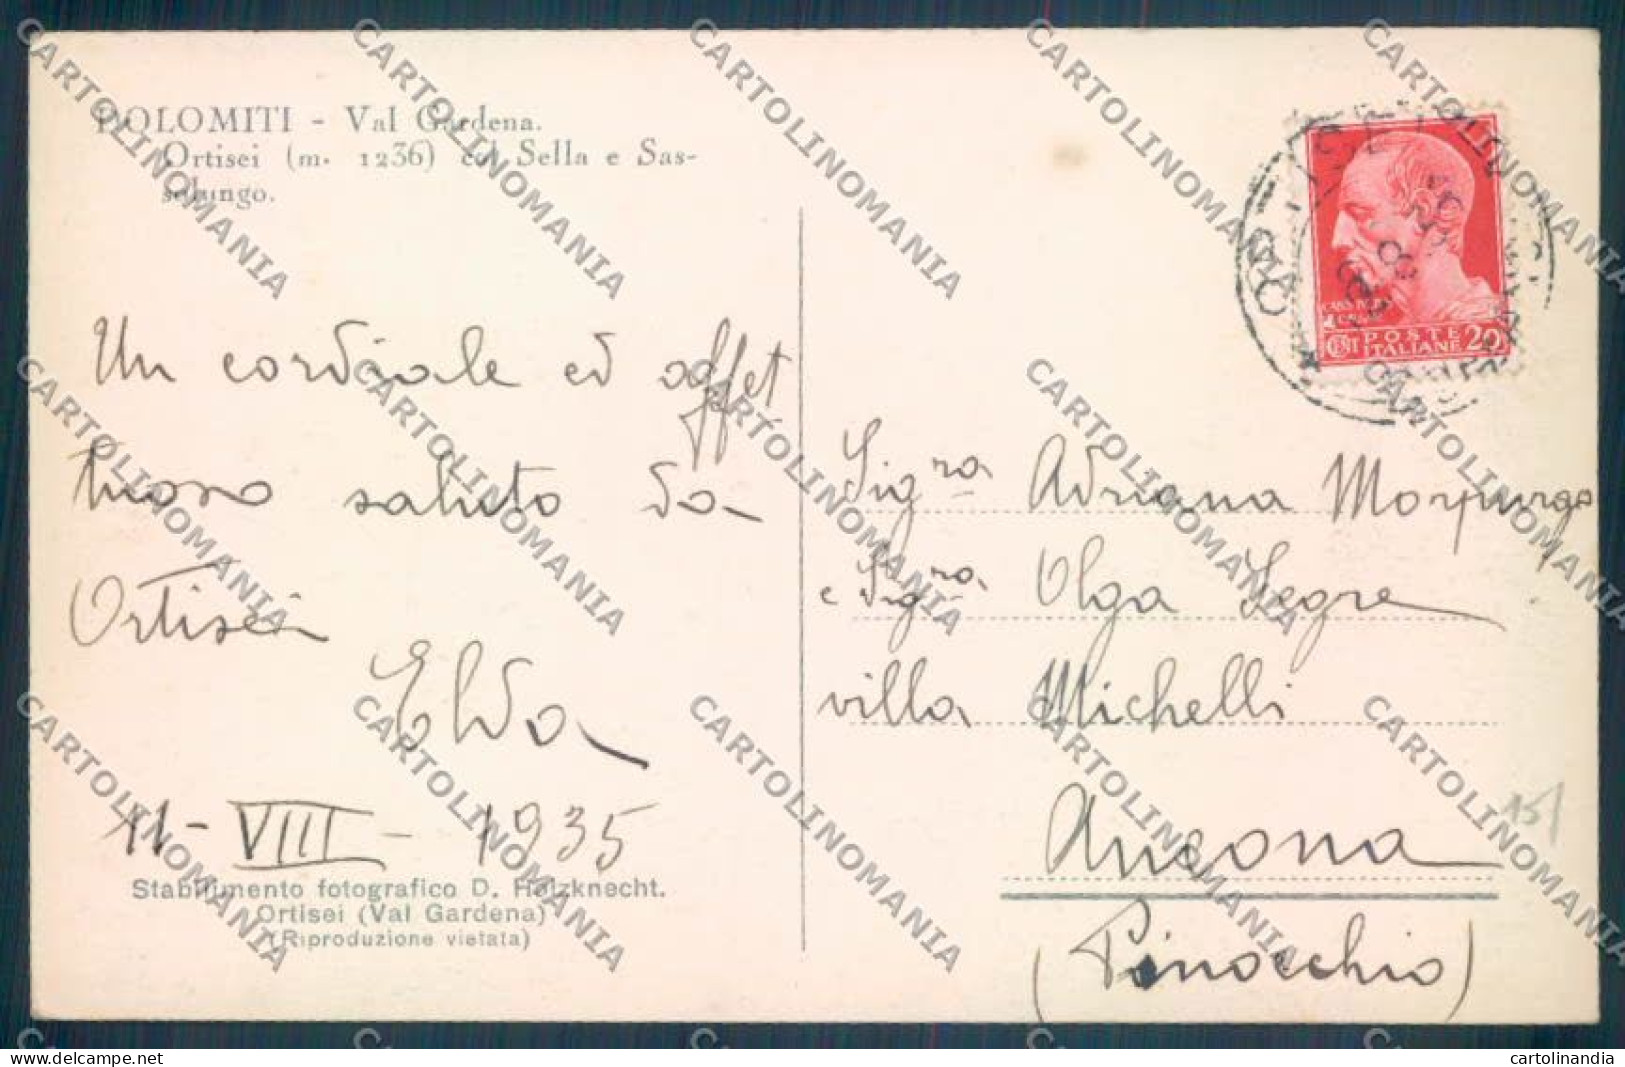 DOLOMITI - Val Gardena.
Ortisei (m. 1236) col Sella e Sas-
solungo.
Un cordiale ed affet
tuoso saluto da
Ortisei
Elda
11-VIII-1935
Stabilimento fotografico D. Holzknecht.
Ortisei (Val Gardena)
(Riproduzione vietata)
CENT POSTE ITALIANE 20
Sig.ra Adriana Morpurgo
e Sig.ra Olga Segre
villa Michelli
Ancona
(Pinocchio)
15/
CARTOLINOMANIA
cartolinandia